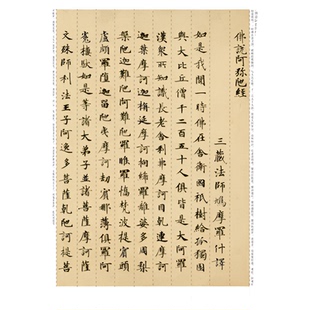 佛說阿弥陁經
三藏法師鳩摩羅什譯
如是我聞一時佛在舍衛國祇樹給孤獨園
與大比丘僧千二百五十人俱皆是大阿羅
漢衆所知識長老舍利弗摩訶目乹連摩訶
迦葉摩訶迦栴延摩訶拘絺羅離婆多周梨
槃陁迦難陁阿難陁羅睺羅憍梵波提賓頭
盧頗羅墮迦留陁夷摩訶劫賓那薄俱羅阿
㝹樓馱如是等諸大弟子并諸菩薩摩訶薩
文殊師利法王子阿逸多菩薩乹陁訶提菩